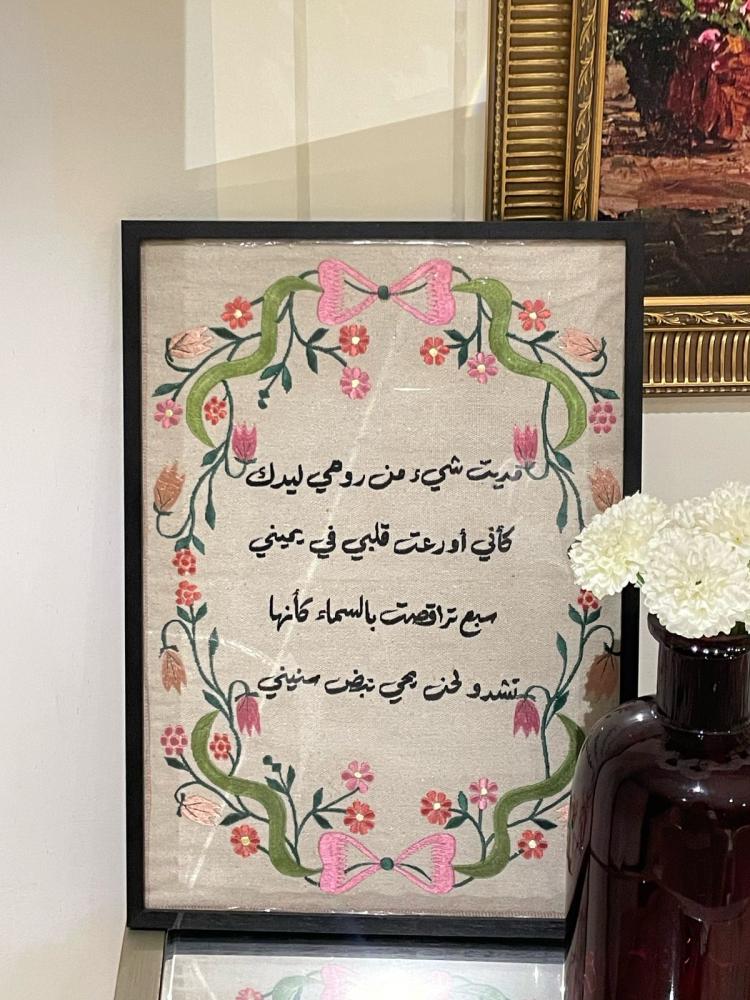 فديت شيء من روحي ليدك
كأني أودعت قلبي في يميني
سبع تراقصت بالسماء كأنها
تشدو لحن يحي نبض سنيني